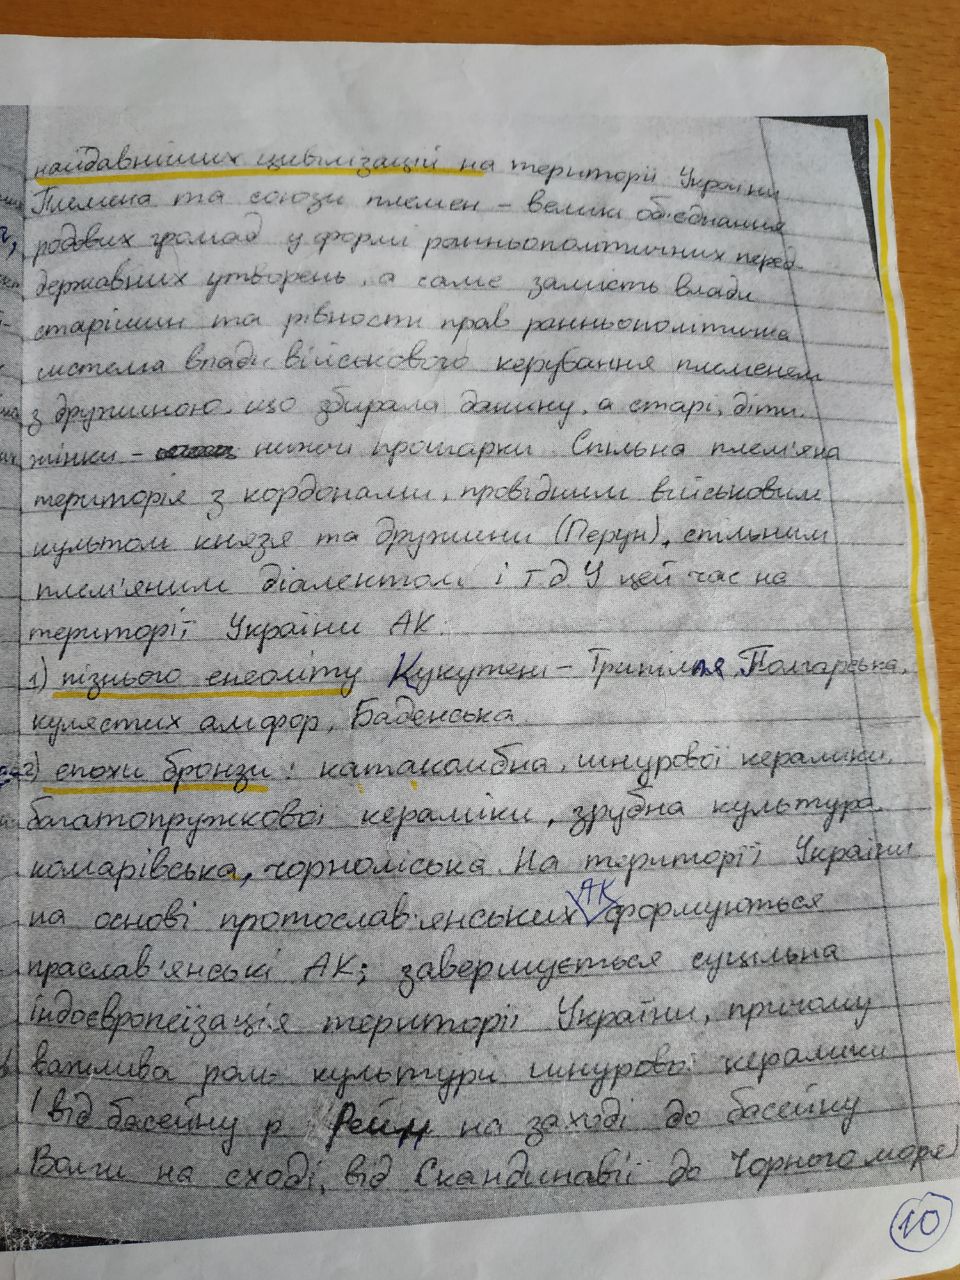 найдавніших цивілізацій на території України
Племена та союзи племен – великі об'єднання
родових громад у формі ранньополітичних перед-
державних утворень, а саме замість влади
старішин та рівности прав ранньополітична
система влади військового керування племенем
з дружиною, що збирала данину, а старі, діти,
жінки – нижчі прошарки. Спільна плем'яна
територія з кордонами, провідним військовим
культом князя та дружини (Перун), спільним
плем'яним діалектом і т д У цей час на
території України АК.
1) пізнього енеоліту Кукутені – Трипілля, Полгарська,
кулястих амфор, Баденська
2) епохи бронзи: катакомбна, шнурової кераміки,
багатопружкової кераміки, зрубна культура
комарівська, чорноліська. На території України
на основі протослав'янських АК формуються
праслав'янські АК; завершується суцільна
індоєвропеїзація території України, причому
важлива роль культури шнурової кераміки
/ від басейну р Рейн на заході до басейну
Волги на сході, від Скандинавії до Чорного моря)
10